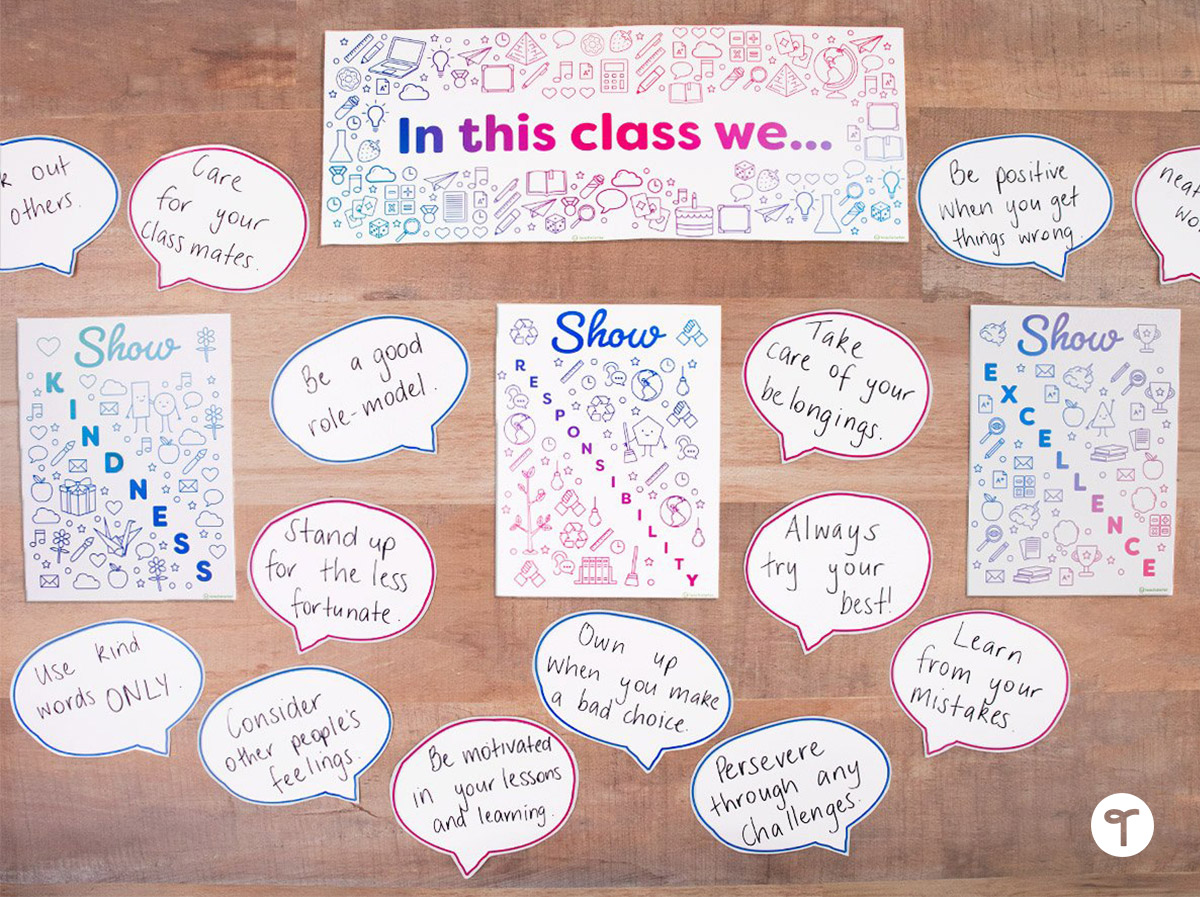 In this class we...
out
others.
Care
for your
classmates.
Be positive
when you get
things wrong.
Show
KINDNESS
Be a good
role-model.
Show
RESPONSIBILITY
Take
care of your
belongings.
Show
EXCELLENCE
Stand up
for the less
fortunate.
Always
try your
best!
Use kind
words ONLY.
Consider
other people's
feelings.
Be motivated
in your lessons
and learning.
Own up
when you make
a bad choice.
Persevere
through any
challenges.
Learn
from your
mistakes.